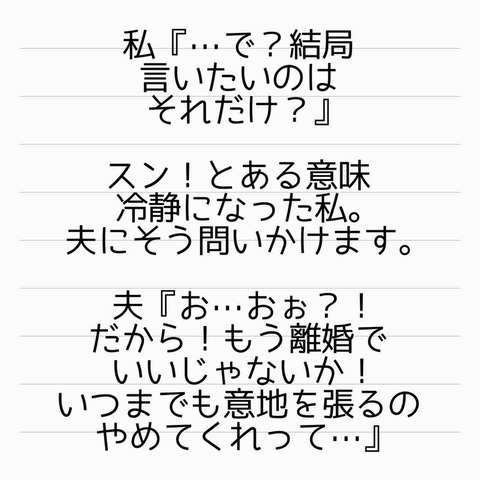 私『…で？結局
言いたいのは
それだけ？』
スン！とある意味
冷静になった私。
夫にそう問いかけます。
夫『お…おぉ？！
だから！もう離婚で
いいじゃないか！
いつまでも意地を張るの
やめてくれって…』